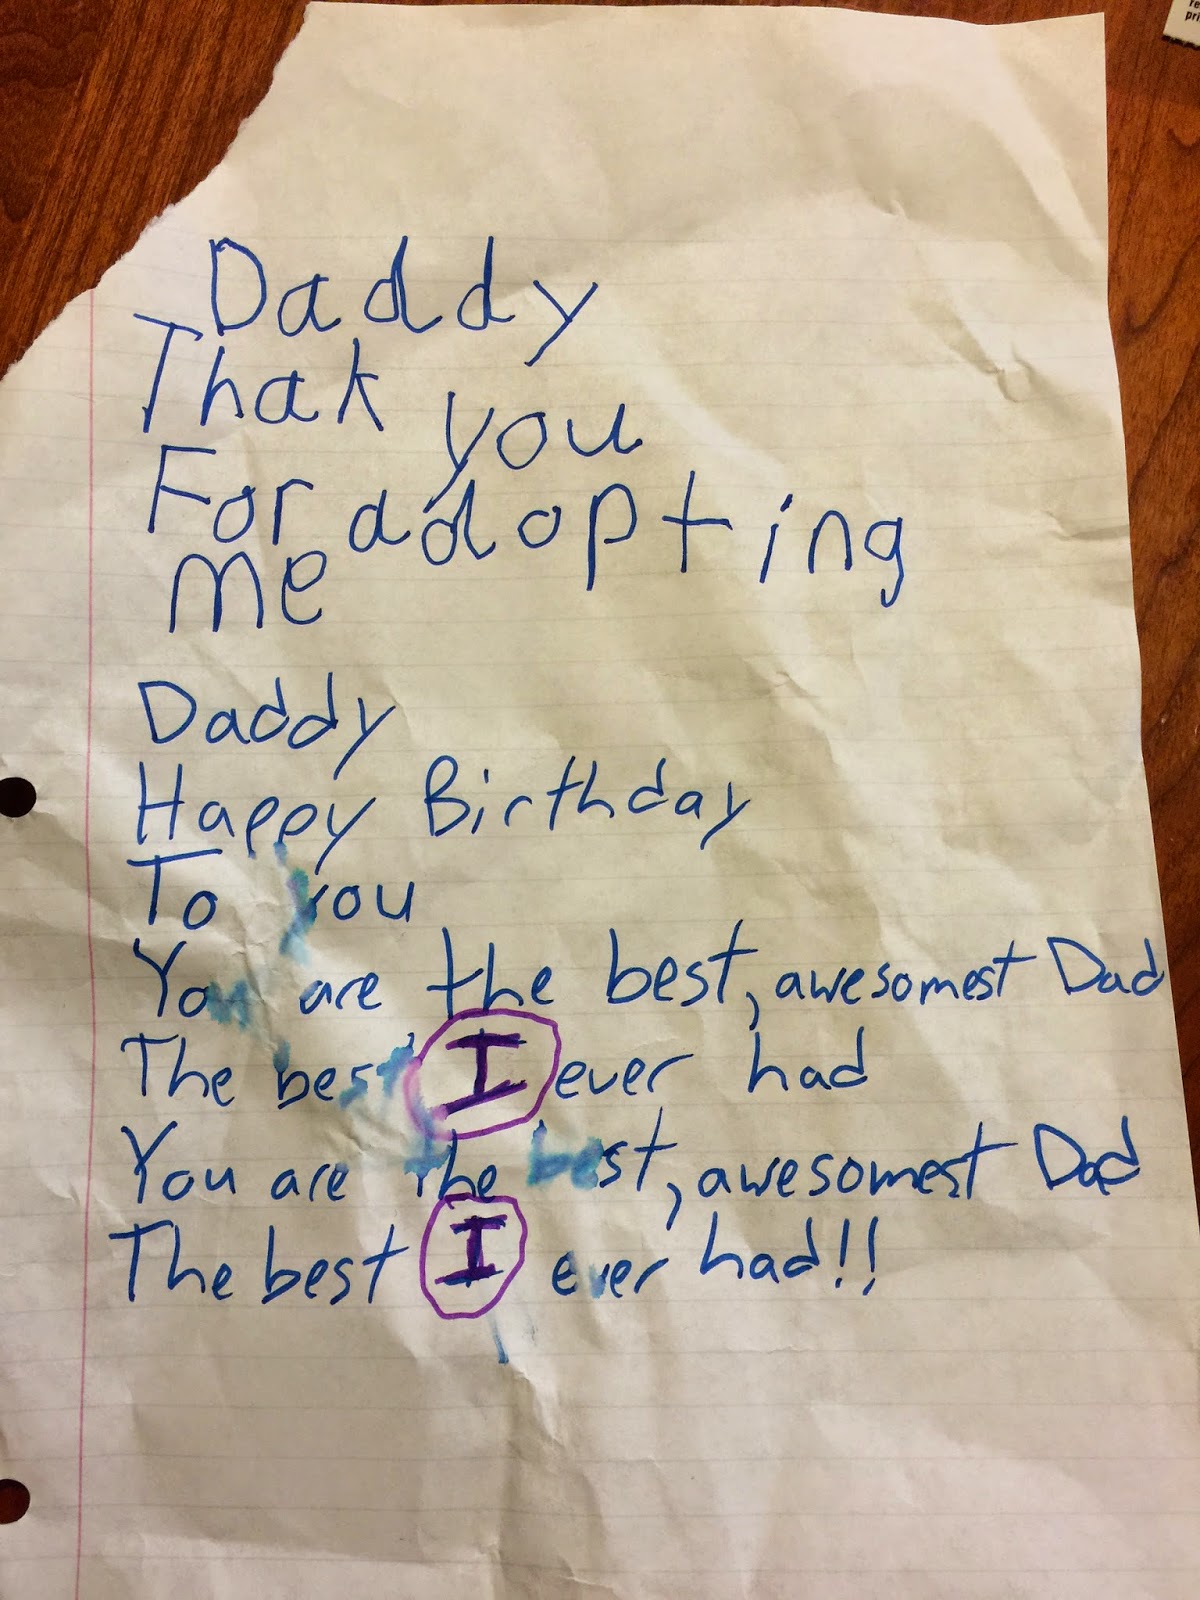 Daddy
Thak you
For addopting
me
Daddy
Happy Birthday
To you
You are the best, awesomest Dad
The best I ever had
You are the best, awesomest Dad
The best I ever had!!